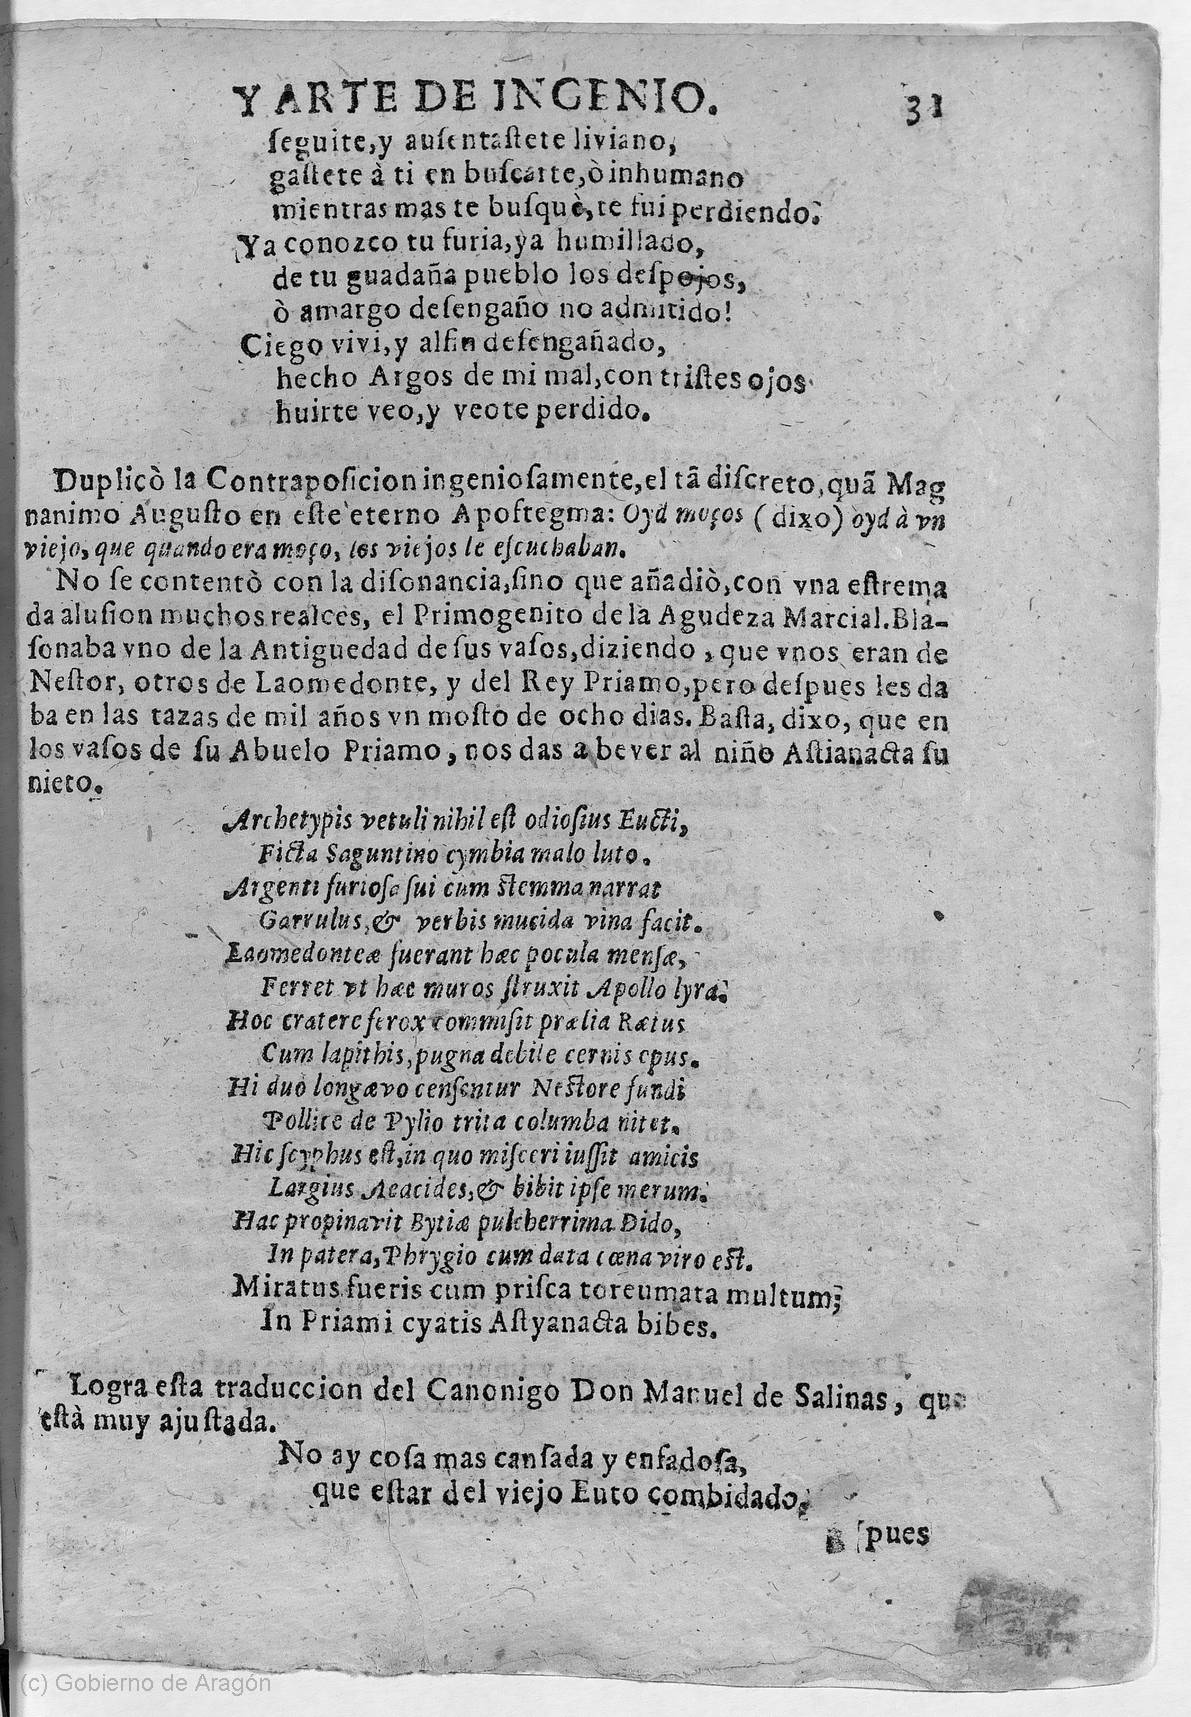 Y ARTE DE INGENIO. 31
ſeguite, y auſentaſtete liviano,
gaſtete à ti en buſcarte, ò inhumano
mientras mas te buſquè, te fui perdiendo.
Ya conozco tu furia, ya humillado,
de tu guadaña pueblo los deſpojos,
ò amargo deſengaño no admitido!
Ciego vivi, y alfin deſengañado,
hecho Argos de mi mal, con triſtes ojos
huirte veo, y veote perdido.
Duplicò la Contrapoſicion ingenioſamente, el tã diſcreto, quã Mag
nanimo Auguſto en eſte eterno Apoftegma: Oyd moços (dixo) oyd à vn
viejo, que quando era moço, los viejos le eſcuchaban.
No ſe contentò con la diſonancia, ſino que añadiò, con vna eſtrema
da aluſion muchos realces, el Primogenito de la Agudeza Marcial. Bla-
ſonaba vno de la Antiguedad de ſus vaſos, diziendo, que vnos eran de
Neſtor, otros de Laomedonte, y del Rey Priamo, pero deſpues les da
ba en las tazas de mil años vn moſto de ocho dias. Baſta, dixo, que en
los vaſos de ſu Abuelo Priamo, nos das a bever al niño Aſtianacta ſu
nieto.
Archetypis vetuli nihil eſt odioſius Eucti,
Ficta Saguntino cymbia malo luto.
Argenti furioſa ſui cum ſtemma narrat
Garrulus, & verbis mucida vina facit.
Laomedonteæ fuerant hæc pocula menſæ,
Ferret vt hæc muros ſtruxit Apollo lyra.
Hoc cratere ferox commiſit prælia Rætus
Cum lapithis, pugna debile cernis opus.
Hi duo longævo cenſentur Neſtore fundi
Pollice de Pylio trita columba nitet.
Hic ſcyphus eſt, in quo miſceri iuſſit amicis
Largius Aeacides, & bibit ipſe merum.
Hac propinavit Bytiæ pulcherrima Dido,
In patera, Phrygio cum data cœna viro eſt.
Miratus fueris cum priſca toreumata multum;
In Priami cyatis Aſtyanacta bibes.
Logra eſta traduccion del Canonigo Don Manuel de Salinas, que
eſtà muy ajuſtada.
No ay coſa mas canſada y enfadoſa,
que eſtar del viejo Euto combidado,
pues
(c) Gobierno de Aragón